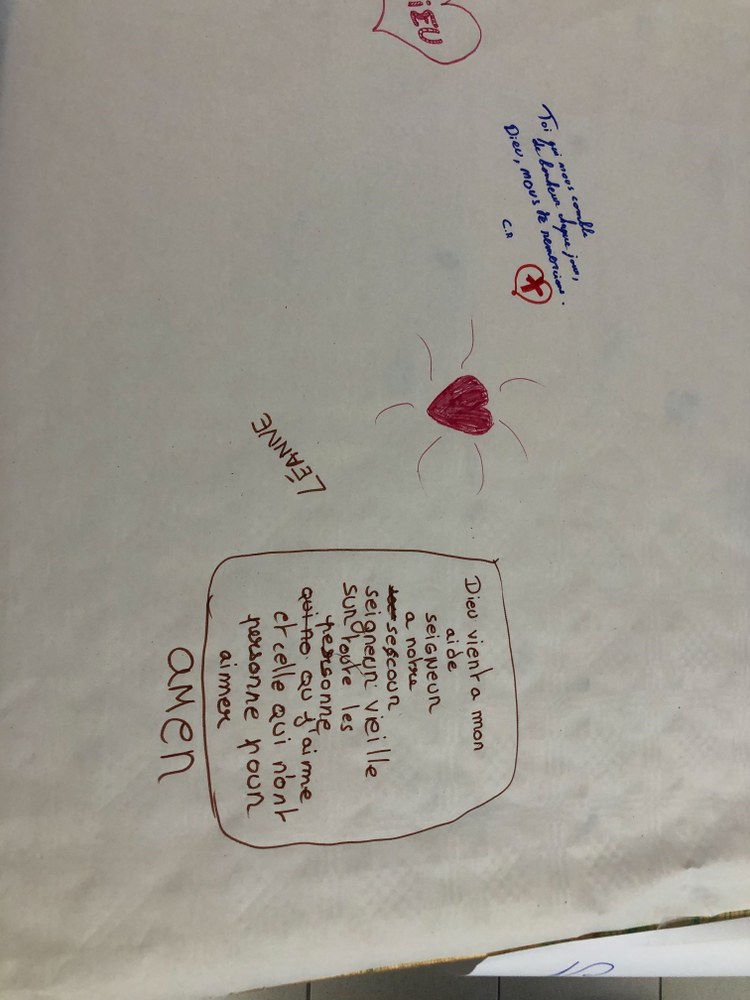 iEU
Toi qui nous comble
de bonheur chaque jour,
Dieu, nous te remercions.
C.D
LÉANNE
Dieu vient a mon
aide
seigneur
a notre
sescour
seigneur vieille
sur toute les
personne
qu j'aime
et celle qui n'ont
personne pour
aimer
amen